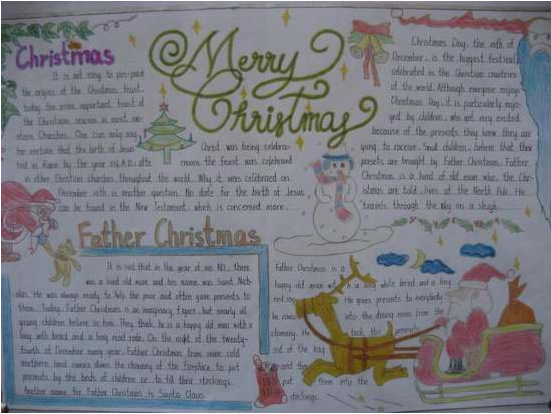 Christmas
It is not easy to pin-point
the origins of the Christmas feast,
today the most important feast of
the Christmas season in most we-
stern Churches. One can only say
for certain that the birth of Jesus
Christ was being celebra-
ted in Rome by the year 354, A.D; late
rmore the feast was celebrated
in other Christian churches throughout the world. Why it was celebrated on
December 25th is another question. No date for the birth of Jesus
can be found in the New Testament, which is concerned more.
Merry
Christmas
Christmas Day, the 25th of
December, is the biggest festival
celebrated in the Christian countries
of the world. Although everyone enjoys
Christmas Day, it is particularly enjo-
yed by children, who get very excited
because of the presents they know they are
going to receive. Small children believe that their
presents are brought by Father Christmas. Father
Christmas is a kind of old man who, the Chri-
stmas are told, lives at the North Pole. He
travels through the sky on a sleigh
Father Christmas
It is said that in the year of AD, there
was a kind old man and his name was Saint Nich-
olas. He was always ready to help the poor and often gave presents to
them. Today, Father Christmas is an imaginary figure, but nearly all
young children believe in him. They think he is a happy old man with a
long with beard and a long read robe. On the night of the twenty-
fourth of December every year, Father Christmas from some cold
northern land comes down the chimney of the fireplace to put
presents by the beds of children or to fill their stockings.
Another name for Father Christmas is Santa Claus.
Father Christmas is a
happy old man with a long white beard and a long
red robe. He gives presents to everybody
he comes into the dining room from the
chimney. He took the presents
out of the bag
and
put them into the
stockings.